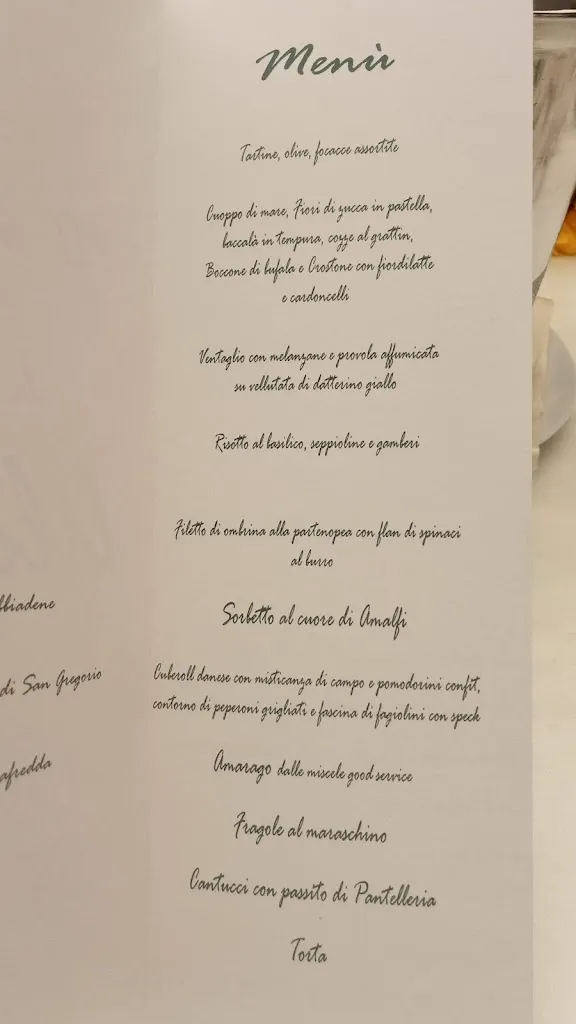 Menù
Tartine, olive, focacce assortite
Cuoppo di mare, Fiori di zucca in pastella,
baccalà in tempura, cozze al grattin,
Boccone di bufala e Crostone con fiordilatte
e cardoncelli
Ventaglio con melanzane e provola affumicata
su vellutata di datterino giallo
Risotto al basilico, seppioline e gamberi
Filetto di ombrina alla partenopea con flan di spinaci
al burro
Sorbetto al cuore di Amalfi
Cuberoll danese con misticanza di campo e pomodorini confit,
contorno di peperoni grigliati e fascina di fagiolini con speck
Amarago dalle miscele good service
Fragole al maraschino
Cantucci con passito di Pantelleria
Torta
bbiadene
di San Gregorio
afredda